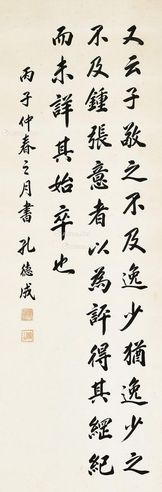 又云子敬之不及逸少猶逸少之
不及鍾張意者以為評得其綱紀
而未詳其始卒也
丙子仲春之月書 孔德成